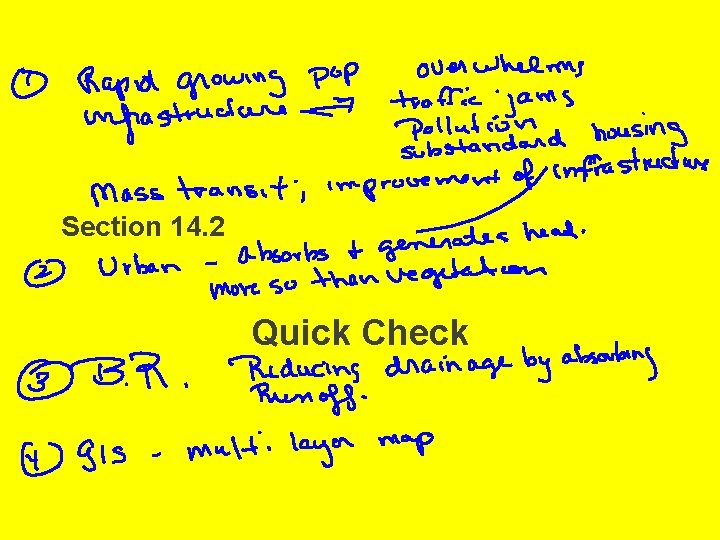 ① Rapid growing pop overwhelms
infrastructure ⟺ traffic jams
Pollution
substandard housing
Mass transit, improvement of infrastructure
Section 14.2
② Urban - absorbs + generates heat.
more so than vegetation
Quick Check
③ B.R. Reducing drainage by absorbing
Runoff.
④ GIS - multi. layer map